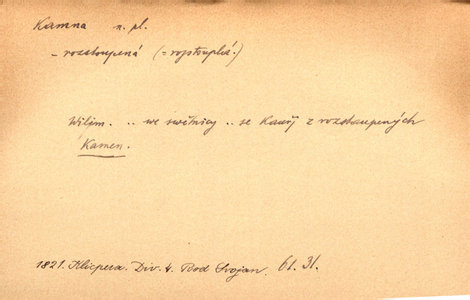 Kamna n. pl.
– rozstoupená (= rozstouplá.)
Wilém. .. we swětnicy .. se kauří z rozstaupených
Kamen.
1821. Klicpera. Div. 4. Bod Svojan. 61. 31.